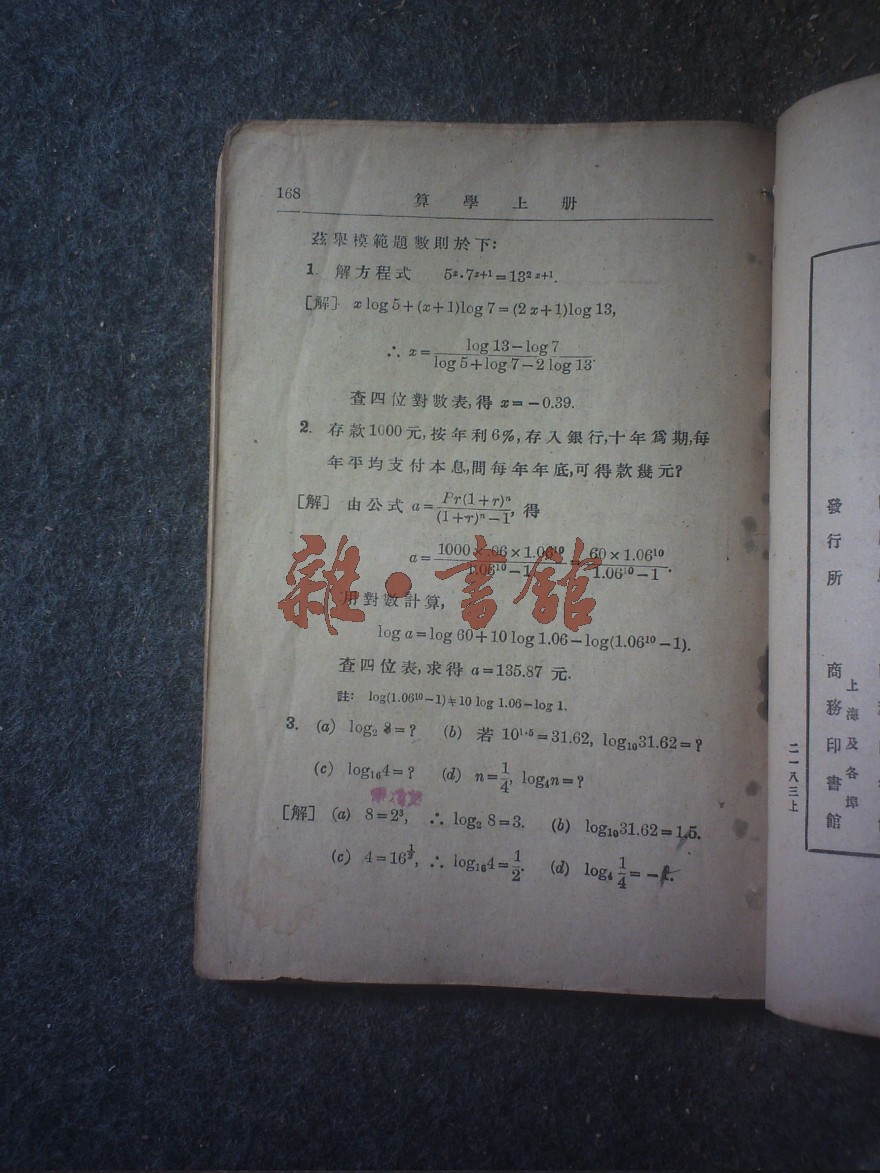 168
算學上册
茲舉模範題數則於下:
1. 解方程式 5ˣ·7ˣ⁺¹=13²ˣ⁺¹.
[解] x log 5+(x+1)log 7=(2x+1)log 13,
∴ x= (log 13−log 7)/(log 5+log 7−2 log 13).
查四位對數表,得 x=−0.39.
2. 存款1000元,按年利6%,存入銀行,十年爲期,每
年平均支付本息,問每年年底,可得款幾元?
[解] 由公式 a= Pr(1+r)ⁿ/((1+r)ⁿ−1), 得
a= (1000×.06×1.06¹⁰)/(1.06¹⁰−1) = (60×1.06¹⁰)/(1.06¹⁰−1).
用對數計算,
log a=log 60+10 log 1.06−log(1.06¹⁰−1).
查四位表,求得 a=135.87 元.
註: log(1.06¹⁰−1)≠10 log 1.06−log 1.
3. (a) log₂ 8=? (b) 若 10¹·⁵=31.62, log₁₀31.62=?
(c) log₁₆4=? (d) n=1/4, log₄n=?
[解] (a) 8=2³, ∴ log₂ 8=3. (b) log₁₀31.62=1.5.
(c) 4=16^½, ∴ log₁₆4=1/2. (d) log₄ 1/4=−1.
雜·書館
發行所
商務印書館
上海及各埠
二一八三上